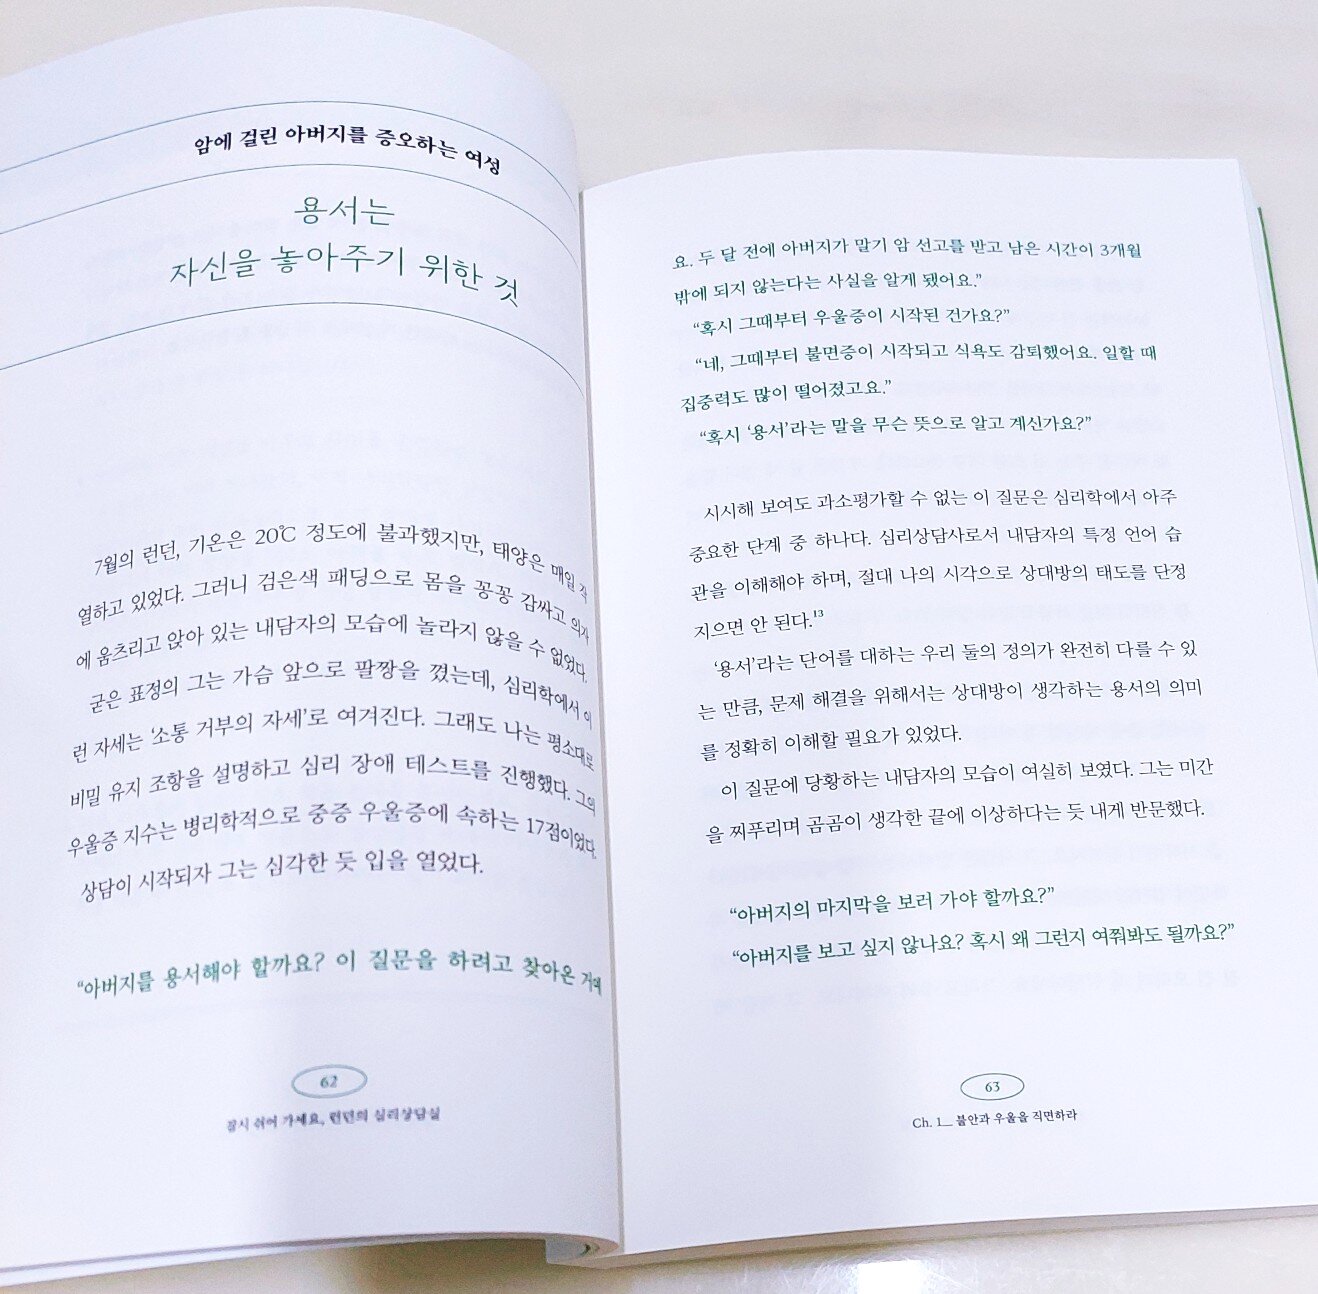 암에 걸린 아버지를 증오하는 여성
용서는
자신을 놓아주기 위한 것
7월의 런던, 기온은 20℃ 정도에 불과했지만, 태양은 매일 작
열하고 있었다. 그러니 검은색 패딩으로 몸을 꽁꽁 감싸고 의자
에 움츠리고 앉아 있는 내담자의 모습에 놀라지 않을 수 없었다.
굳은 표정의 그는 가슴 앞으로 팔짱을 꼈는데, 심리학에서 이
런 자세는 ‘소통 거부의 자세’로 여겨진다. 그래도 나는 평소대로
비밀 유지 조항을 설명하고 심리 장애 테스트를 진행했다. 그의
우울증 지수는 병리학적으로 중증 우울증에 속하는 17점이었다.
상담이 시작되자 그는 심각한 듯 입을 열었다.
“아버지를 용서해야 할까요? 이 질문을 하려고 찾아온 거예
62
잠시 쉬어 가세요, 런던의 심리상담실
요. 두 달 전에 아버지가 말기 암 선고를 받고 남은 시간이 3개월
밖에 되지 않는다는 사실을 알게 됐어요.”
“혹시 그때부터 우울증이 시작된 건가요?”
“네, 그때부터 불면증이 시작되고 식욕도 감퇴했어요. 일할 때
집중력도 많이 떨어졌고요.”
“혹시 ‘용서’라는 말을 무슨 뜻으로 알고 계신가요?”
시시해 보여도 과소평가할 수 없는 이 질문은 심리학에서 아주
중요한 단계 중 하나다. 심리상담사로서 내담자의 특정 언어 습
관을 이해해야 하며, 절대 나의 시각으로 상대방의 태도를 단정
지으면 안 된다.¹³
‘용서’라는 단어를 대하는 우리 둘의 정의가 완전히 다를 수 있
는 만큼, 문제 해결을 위해서는 상대방이 생각하는 용서의 의미
를 정확히 이해할 필요가 있었다.
이 질문에 당황하는 내담자의 모습이 여실히 보였다. 그는 미간
을 찌푸리며 곰곰이 생각한 끝에 이상하다는 듯 내게 반문했다.
“아버지의 마지막을 보러 가야 할까요?”
“아버지를 보고 싶지 않나요? 혹시 왜 그런지 여쭤봐도 될까요?”
63
Ch. 1__ 불안과 우울을 직면하라